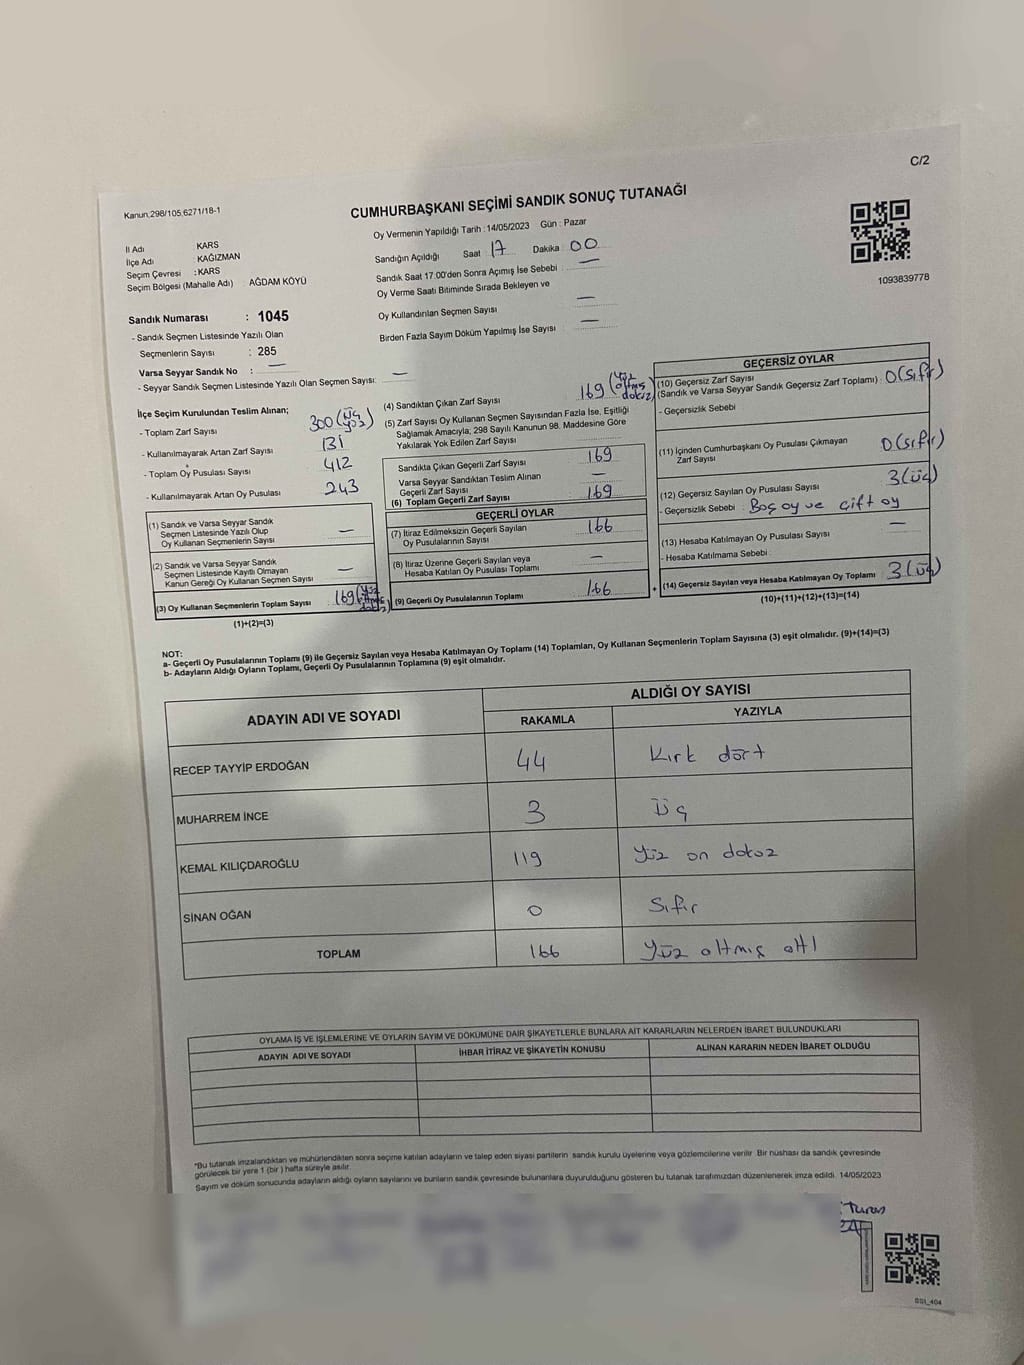 C/2
Kanun,298/105,6271/18-1
CUMHURBAŞKANI SEÇİMİ SANDIK SONUÇ TUTANAĞI
Oy Vermenin Yapıldığı Tarih : 14/05/2023 Gün : Pazar
İl Adı KARS
İlçe Adı KAĞIZMAN
Seçim Çevresi : KARS
Seçim Bölgesi (Mahalle Adı) : AĞDAM KÖYÜ
Sandık Numarası : 1045
- Sandık Seçmen Listesinde Yazılı Olan
Seçmenlerin Sayısı : 285
Varsa Seyyar Sandık No : —
- Seyyar Sandık Seçmen Listesinde Yazılı Olan Seçmen Sayısı: —
Sandığın Açıldığı Saat 17 Dakika 00
Sandık Saat 17.00'den Sonra Açımış İse Sebebi : —
Oy Verme Saati Bitiminde Sırada Bekleyen ve
Oy Kullandırılan Seçmen Sayısı —
Birden Fazla Sayım Döküm Yapılmış İse Sayısı —
1093839778
İlçe Seçim Kurulundan Teslim Alınan;
- Toplam Zarf Sayısı 300 (üç yüz)
- Kullanılmayarak Artan Zarf Sayısı 131
- Toplam Oy Pusulası Sayısı 412
- Kullanılmayarak Artan Oy Pusulası 243
(1) Sandık ve Varsa Seyyar Sandık
Seçmen Listesinde Yazılı Olup
Oy Kullanan Seçmenlerin Sayısı —
(2) Sandık ve Varsa Seyyar Sandık
Seçmen Listesinde Kayıtlı Olmayan
Kanun Gereği Oy Kullanan Seçmen Sayısı —
(3) Oy Kullanan Seçmenlerin Toplam Sayısı 169 (yüz altmış dokuz)
(1)+(2)=(3)
(4) Sandıktan Çıkan Zarf Sayısı 169 (yüz altmış dokuz)
(5) Zarf Sayısı Oy Kullanan Seçmen Sayısından Fazla İse, Eşitliği
Sağlamak Amacıyla, 298 Sayılı Kanunun 98. Maddesine Göre
Yakılarak Yok Edilen Zarf Sayısı
Sandıkta Çıkan Geçerli Zarf Sayısı 169
Varsa Seyyar Sandıktan Teslim Alınan
Geçerli Zarf Sayısı
(6) Toplam Geçerli Zarf Sayısı 169
GEÇERLİ OYLAR
(7) İtiraz Edilmeksizin Geçerli Sayılan
Oy Pusulalarının Sayısı 166
(8) İtiraz Üzerine Geçerli Sayılan veya
Hesaba Katılan Oy Pusulası Toplamı —
(9) Geçerli Oy Pusulalarının Toplamı 166
+
GEÇERSİZ OYLAR
(10) Geçersiz Zarf Sayısı
(Sandık ve Varsa Seyyar Sandık Geçersiz Zarf Toplamı) : 0 (sıfır)
- Geçersizlik Sebebi
(11) İçinden Cumhurbaşkanı Oy Pusulası Çıkmayan
Zarf Sayısı 0 (sıfır)
(12) Geçersiz Sayılan Oy Pusulası Sayısı 3 (üç)
- Geçersizlik Sebebi : Boş oy ve çift oy
(13) Hesaba Katılmayan Oy Pusulası Sayısı —
- Hesaba Katılmama Sebebi
(14) Geçersiz Sayılan veya Hesaba Katılmayan Oy Toplamı 3 (üç)
(10)+(11)+(12)+(13)=(14)
NOT:
a- Geçerli Oy Pusulalarının Toplamı (9) ile Geçersiz Sayılan veya Hesaba Katılmayan Oy Toplamı (14) Toplamları, Oy Kullanan Seçmenlerin Toplam Sayısına (3) eşit olmalıdır. (9)+(14)=(3)
b- Adayların Aldığı Oyların Toplamı, Geçerli Oy Pusulalarının Toplamına (9) eşit olmalıdır.
ADAYIN ADI VE SOYADI ALDIĞI OY SAYISI
RAKAMLA YAZIYLA
RECEP TAYYİP ERDOĞAN 44 Kırk dört
MUHARREM İNCE 3 Üç
KEMAL KILIÇDAROĞLU 119 Yüz on dokuz
SİNAN OĞAN 0 Sıfır
TOPLAM 166 Yüz altmış altı
OYLAMA İŞ VE İŞLEMLERİNE VE OYLARIN SAYIM VE DÖKÜMÜNE DAİR ŞİKAYETLERLE BUNLARA AİT KARARLARIN NELERDEN İBARET BULUNDUKLARI
ADAYIN ADI VE SOYADI İHBAR İTİRAZ VE ŞİKAYETİN KONUSU ALINAN KARARIN NEDEN İBARET OLDUĞU
*Bu tutanak imzalandıktan ve mühürlendikten sonra seçime katılan adayların ve talep eden siyasi partilerin sandık kurulu üyelerine veya gözlemcilerine verilir. Bir nüshası da sandık çevresinde
görülecek bir yere 1 (bir) hafta süreyle asılır.
Sayım ve döküm sonucunda adayların aldığı oyların sayılarını ve bunların sandık çevresinde bulunanlara duyurulduğunu gösteren bu tutanak tarafımızdan düzenlenerek imza edildi. 14/05/2023